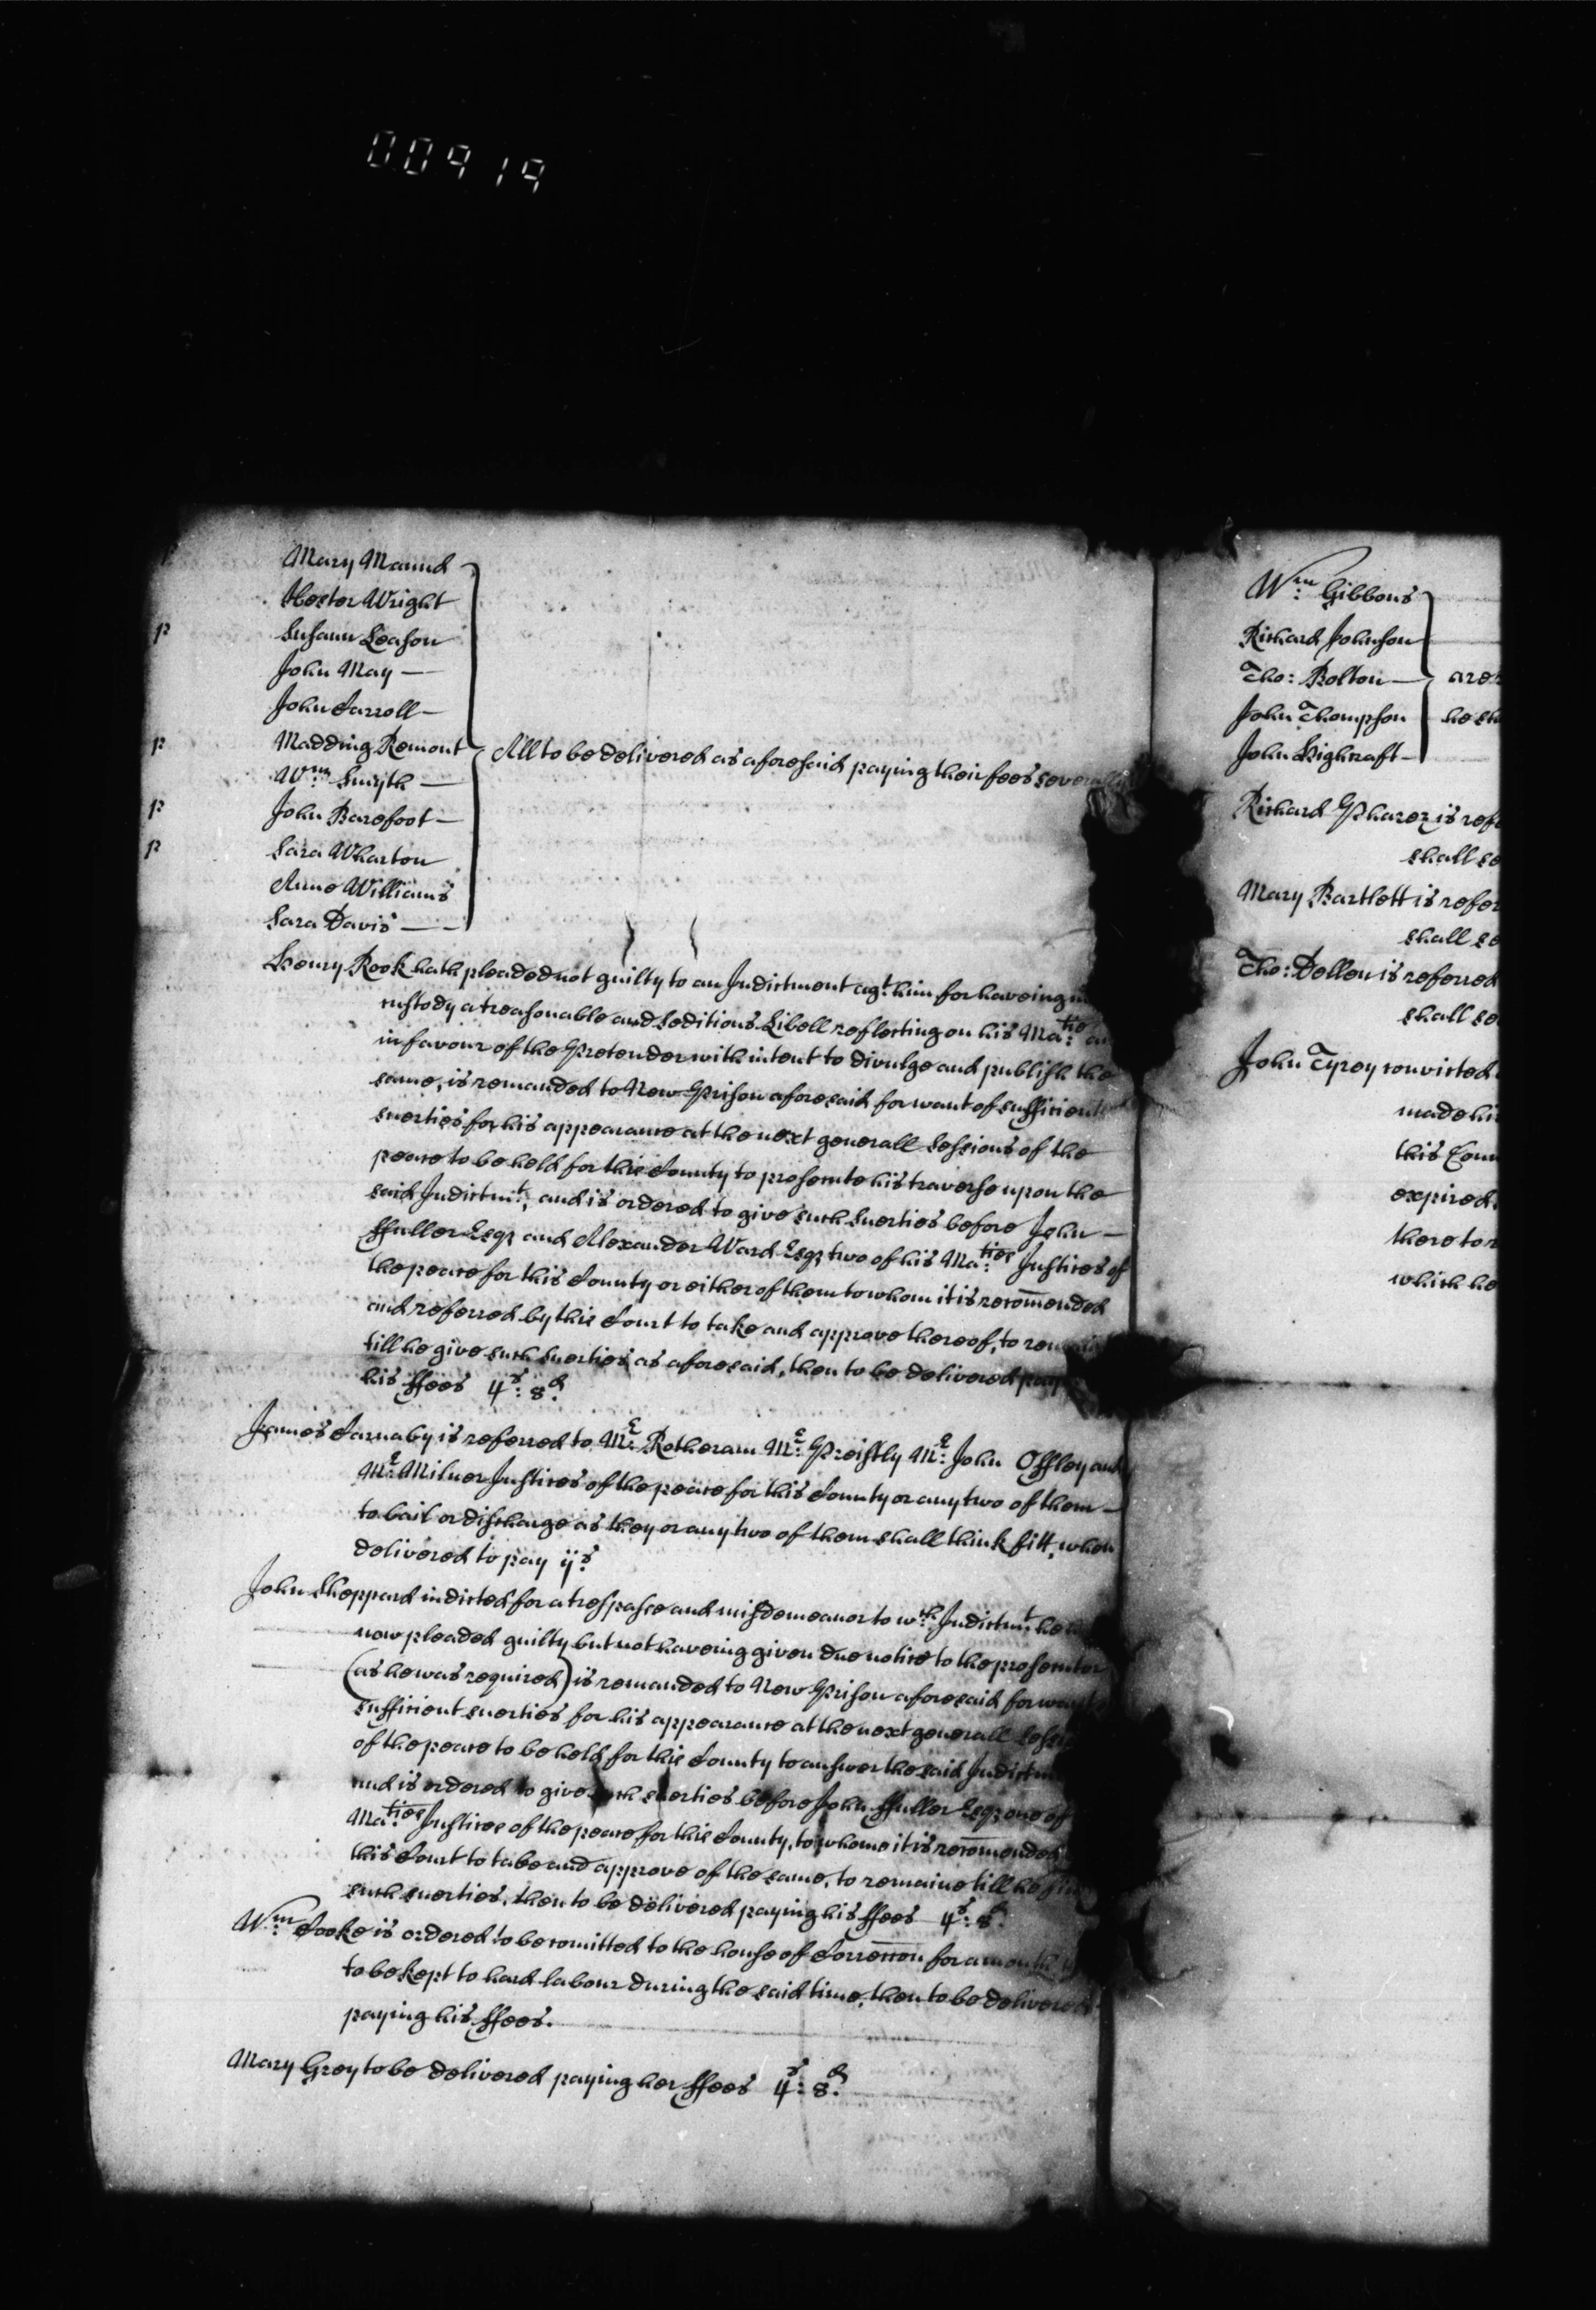 00919
Mary Maund
Hester Wright
p Susann Leason
John May —
John Carroll —
p Madding Remont All to be delivered as aforesaid paying their fees severally
Wm Smyth —
p John Barefoot —
p Sara Wharton
Anne Williams
Sara Davis — —
Henry Rook hath pleaded not guilty to an Indictment agt. him for haveing
custody a treasonable and Seditious Libell reflecting on his Matie.
in favour of the Pretender with intent to divulge and publish the
same, is remanded to New Prison aforesaid for want of sufficient
suerties for his appearance at the next generall Sessions of the
peace to be held for this County to prosecute his traverse upon the
said Indictmt., and is ordered to give such Suerties before John —
ffuller Esqr and Alexander Ward Esqr two of his Maties. Justices of
the peace for this County or either of them to whom it is recom̅ended
and referred by this Court to take and approve thereof, to
till he give such Suerties as aforesaid, then to be delivered
his ffees 4s: 8d.
James Carnaby is referred to Mr. Rotheram Mr. Preistly Mr. John Offley and
Mr. Milner Justices of the peace for this County or any two of them —
to bail or discharge as they or any two of them shall think fitt, when
delivered to pay ijs.
John Sheppard indicted for a trespasse and misdemeanor to wch. Indictmt. he
now pleaded guilty but not haveing given due notice to the prosecutor
(as he was required) is remanded to New Prison aforesaid for want
sufficient suerties for his appearance at the next generall
of the peace to be held for this County to answer the said
and is ordered to give such suerties before John ffuller Esqr one of
Maties. Justices of the peace for this County, to whome it is recom̅ended
this Court to take and approve of the same, to remaine till he
such suerties, then to be delivered paying his ffees 4s: 8d.
Wm. Cooke is ordered to be com̅itted to the house of Correccon for a month
to be kept to hard labour during the said time, then to be delivered
paying his ffees.
Mary Grey to be delivered paying her ffees 4s: 8d.
Wm. Gibbons
Richard Johnson
Tho: Bolton — are
John Thompson he
John Highcraft —
Richard Pharez is
shall
Mary Bartlett is
shall
Tho: Dellen is referred
shall
John Tyrey convicted
made
this
expired
there to
which he